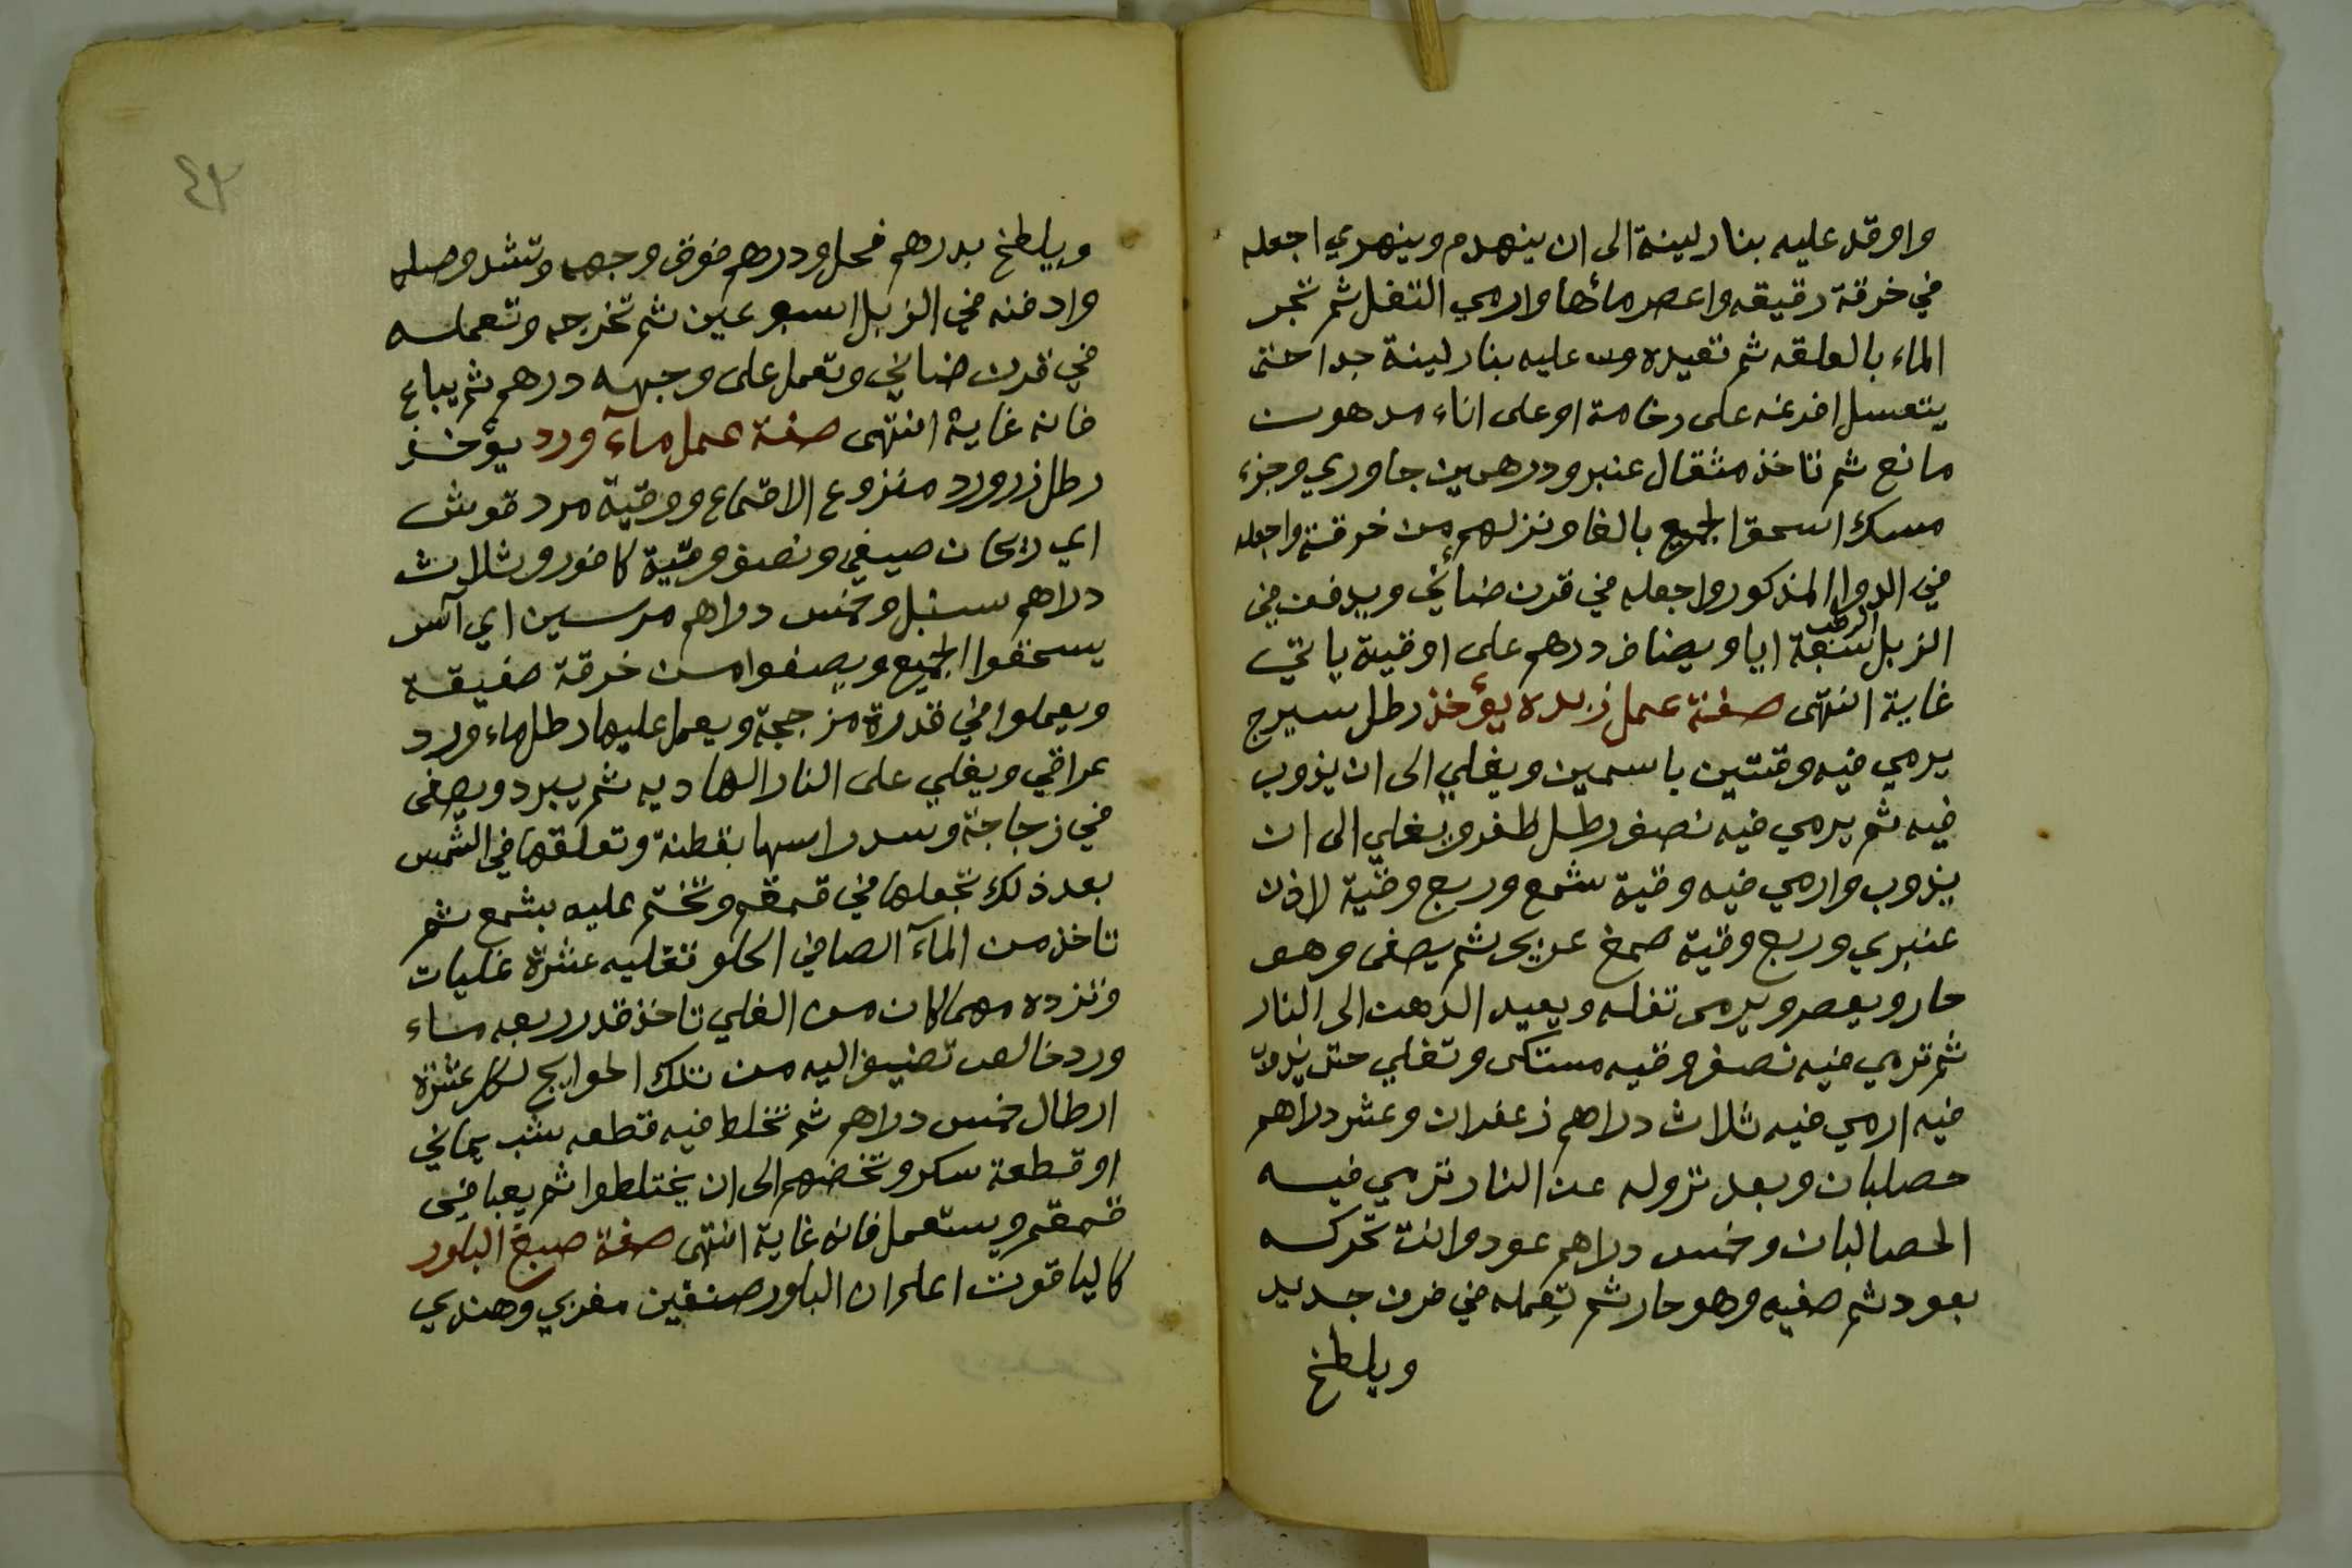 واوقد عليه بنار لينة الى ان ينهدم وينهري اجعله
في خرقة رقيقه واعصر مائها وارمي التفل ثم تجر
الماء بالعلقه ثم تعيده عليه بنار لينة جدا حتى
يتعسل افرغه على رخامة او على اناء مدهون
مانع ثم تاخذ مثقال عنبر ودرهمين جاوري وجزء
مسك اسحق الجميع بالغا ونزلهم من خرقة واجعله
في الدوا المذكور واجعله في قرن ضائني ويدفن في
الزبل الرطب سبعة ايا ويضاف درهم على اوقية ياتي
غاية انتهى صفة عمل زبده يؤخذ رطل سيرج
يرمي فيه وقتين ياسمين ويغلي الى ان يذوب
فيه ثم يرمي فيه نصف رطل ظفر ويغلي الى ان
يذوب وارمي فيه وقية شمع وربع وقية لاذن
عنبري وربع وقية صمغ عربي ثم يصفى وهو
حار ويعصر ويرمى تفله ويعيد الدهن الى النار
ثم ترمي فيه نصف وقيه مستكى وتغلي حتى يذوب
فيه ارمي فيه ثلاث دراهم زعفران وعشر دراهم
حصلبان وبعد نزوله عن النار ترمي فيه
الحصالبان وخمس دراهم عود وانت تحركه
بعود ثم صفيه وهو حار ثم تعمله في قرن جديد
ويلطخ
٤٣
ويلطخ بدرهم فحل ودرهم فوق وجهه وتشد وصله
وادفنه في الزبل اسبوعين ثم تخرجه وتعمله
في قرن ضاني وتعمل على وجهه درهم ثم يباع
فانه غاية انتهى صفة عمل مآء ورد يؤخذ
رطل زرورد منزوع الاقماع ووقية مردقوش
اي ريحان صيفي ونصف وقية كافور وثلاث
دراهم سنبل وخمس دراهم مرسين اي آس
يسحقوا الجميع ويصفوا من خرقة صفيقة
ويعملوا في قدرة مزججة ويعمل عليها رطل ماء ورد
عراقي ويغلي على النار الهاديه ثم يبرد ويصفى
في زجاجة وسد راسها بقطنة وتعلقها في الشمس
بعد ذلك تجعلها في قمقم وتختم عليه بشمع ثم
تاخذ من المآء الصافي الحلو تغليه عشرة غليات
وتزده مهما كان من الغلي تاخذ قدر ربعه ماء
ورد خالص تضيف اليه من تلك الحوايج لكل عشرة
ارطال خمس دراهم ثم تخلط فيه قطعه شب يماني
او قطعة سكر وتخضهم الى ان يختلطوا ثم يعبا في
قمقم ويستعمل فانه غاية انتهى صفة صبغ البلور
كالياقوت اعلم ان البلور صنفين مغربي وهندي